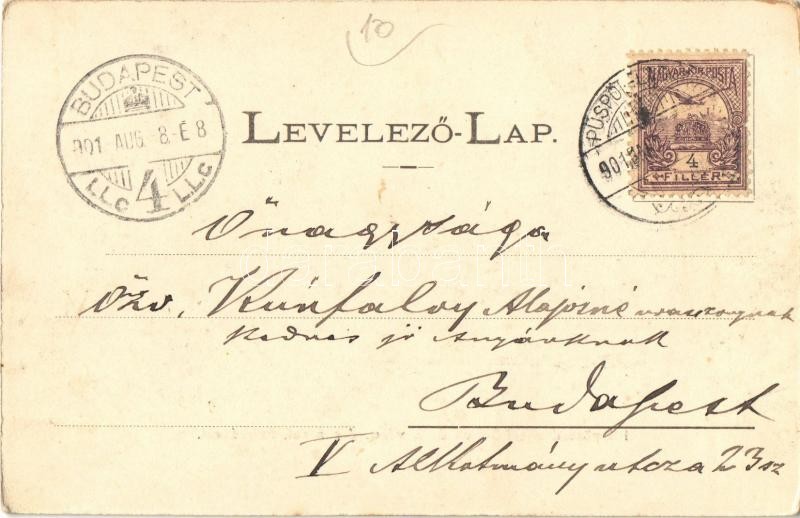 10
BUDAPEST
901 AUG. 8. É 8
I.L.c 4 I.L.c
LEVELEZŐ-LAP.
PÜSPÖK
901
MAGYAR KIR. POSTA
4
FILLÉR
Önagysága
Özv. Kúnfalvy Alajosné
Kedves jó Anyánknak
Budapest
V Alkotmány utcza 23 sz